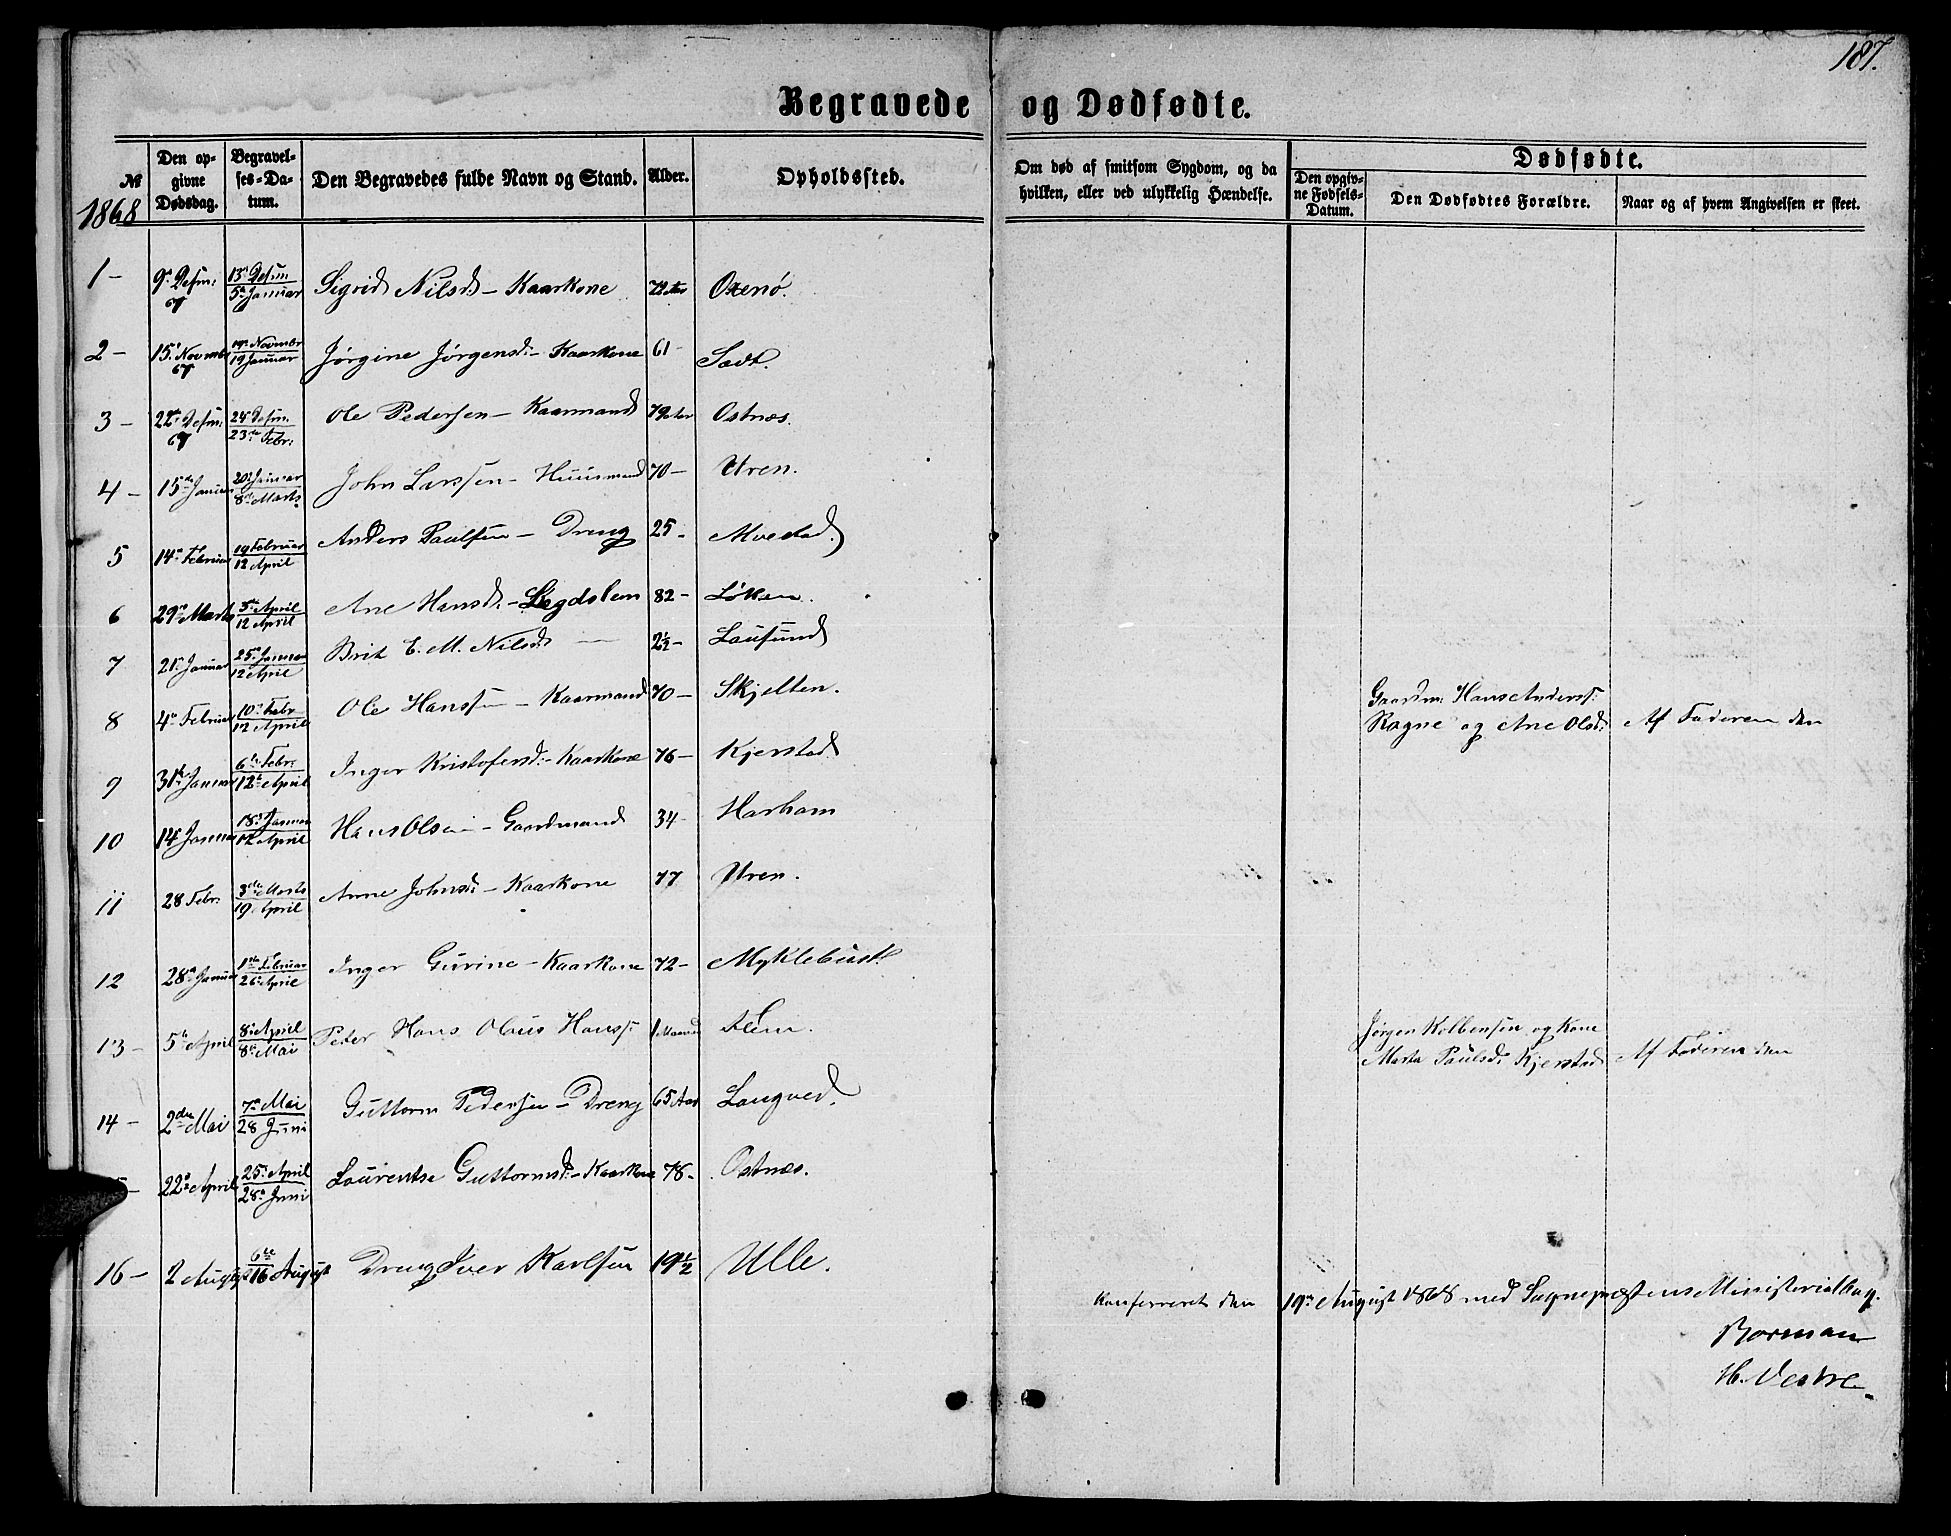 187.
Begravede og Dødfødte.
№
Den opgivne Dødsdag.
Begravelses-Datum.
Den Begravedes fulde Navn og Stand.
Alder.
Opholdssted.
Om død af smitsom Sygdom, og da hvilken, eller ved ulykkelig Hændelse.
Dødfødte.
Den opgivne Fødsels-Datum.
Den Dødfødtes Forældre.
Naar og af hvem Angivelsen er skeet.
1868
1 - 9de Desm: 67 13de Desm 5te Januar Sigrid Nilsd: - Kaarkone Oxenø.
2 - 15de Novmbr 67 19de Novmbr 19 Januar Jørgine Jørgensd: - Kaarkone 61 -
3 - 22de Desm: 67 24de Desm. 23de Febr: Ole Pedersen - Kaarmand Ostnæs.
4 - 15de Januar 20de Januar 8de Marts John Larssen - Huusmand 70 - Uren.
5 14de Februar 19 Februar 12 April Anders Paulsen - Dreng 25 -
6 29de Marts 5te April 12 April Ane Hansd: - Legdslem 82 - Løken.
7 21de Januar 25de Januar 12 April Brit E. M. Nilsd: 2½ - Lausund
8 4de Februar 10de Febr 12 April Ole Hanssen - Kaarmand 70 - Skjelten.
Gaardm: Hans Anderss:
Rogne og Ane Olsd: Af Faderen den
9 31te Januar 6te Febr: 12te April Inger Kristofersd: - Kaarkone 76 - Kjerstad
10 14de Januar 18de Januar 12 April Hans Olsen - Gaardmand 34 - Harham
11 28 Febr: 3die Marts 19 April Anne Johnsd: - Kaarkone 77 Uren.
12 28de Januar 1ste Februar 26de April Inger Gurine - Kaarkone 72 - Myklebust
13 - 5te April 8de April 8de Mai Peter Hans Olaus Hanss: 1 Maaned Flem.
Jørgen Kolbensen og Kone
Marta Paulsd: Kjerstad Af Faderen den
14 - 2den Mai 7de Mai 28 Juni Guttorm Pedersen - Dreng 65 Aar Longved.
22de April 25de April 28de Juni Laurentse Guttormsd: - Kaarkone 78 - Ostnæs.
16 - 2 August 6te 16 August Dreng Iver Karlsen 19½ Ulle.
Konfereret den 19de August 1868 med Sognepræstens Ministerialbog.
H. Vestre